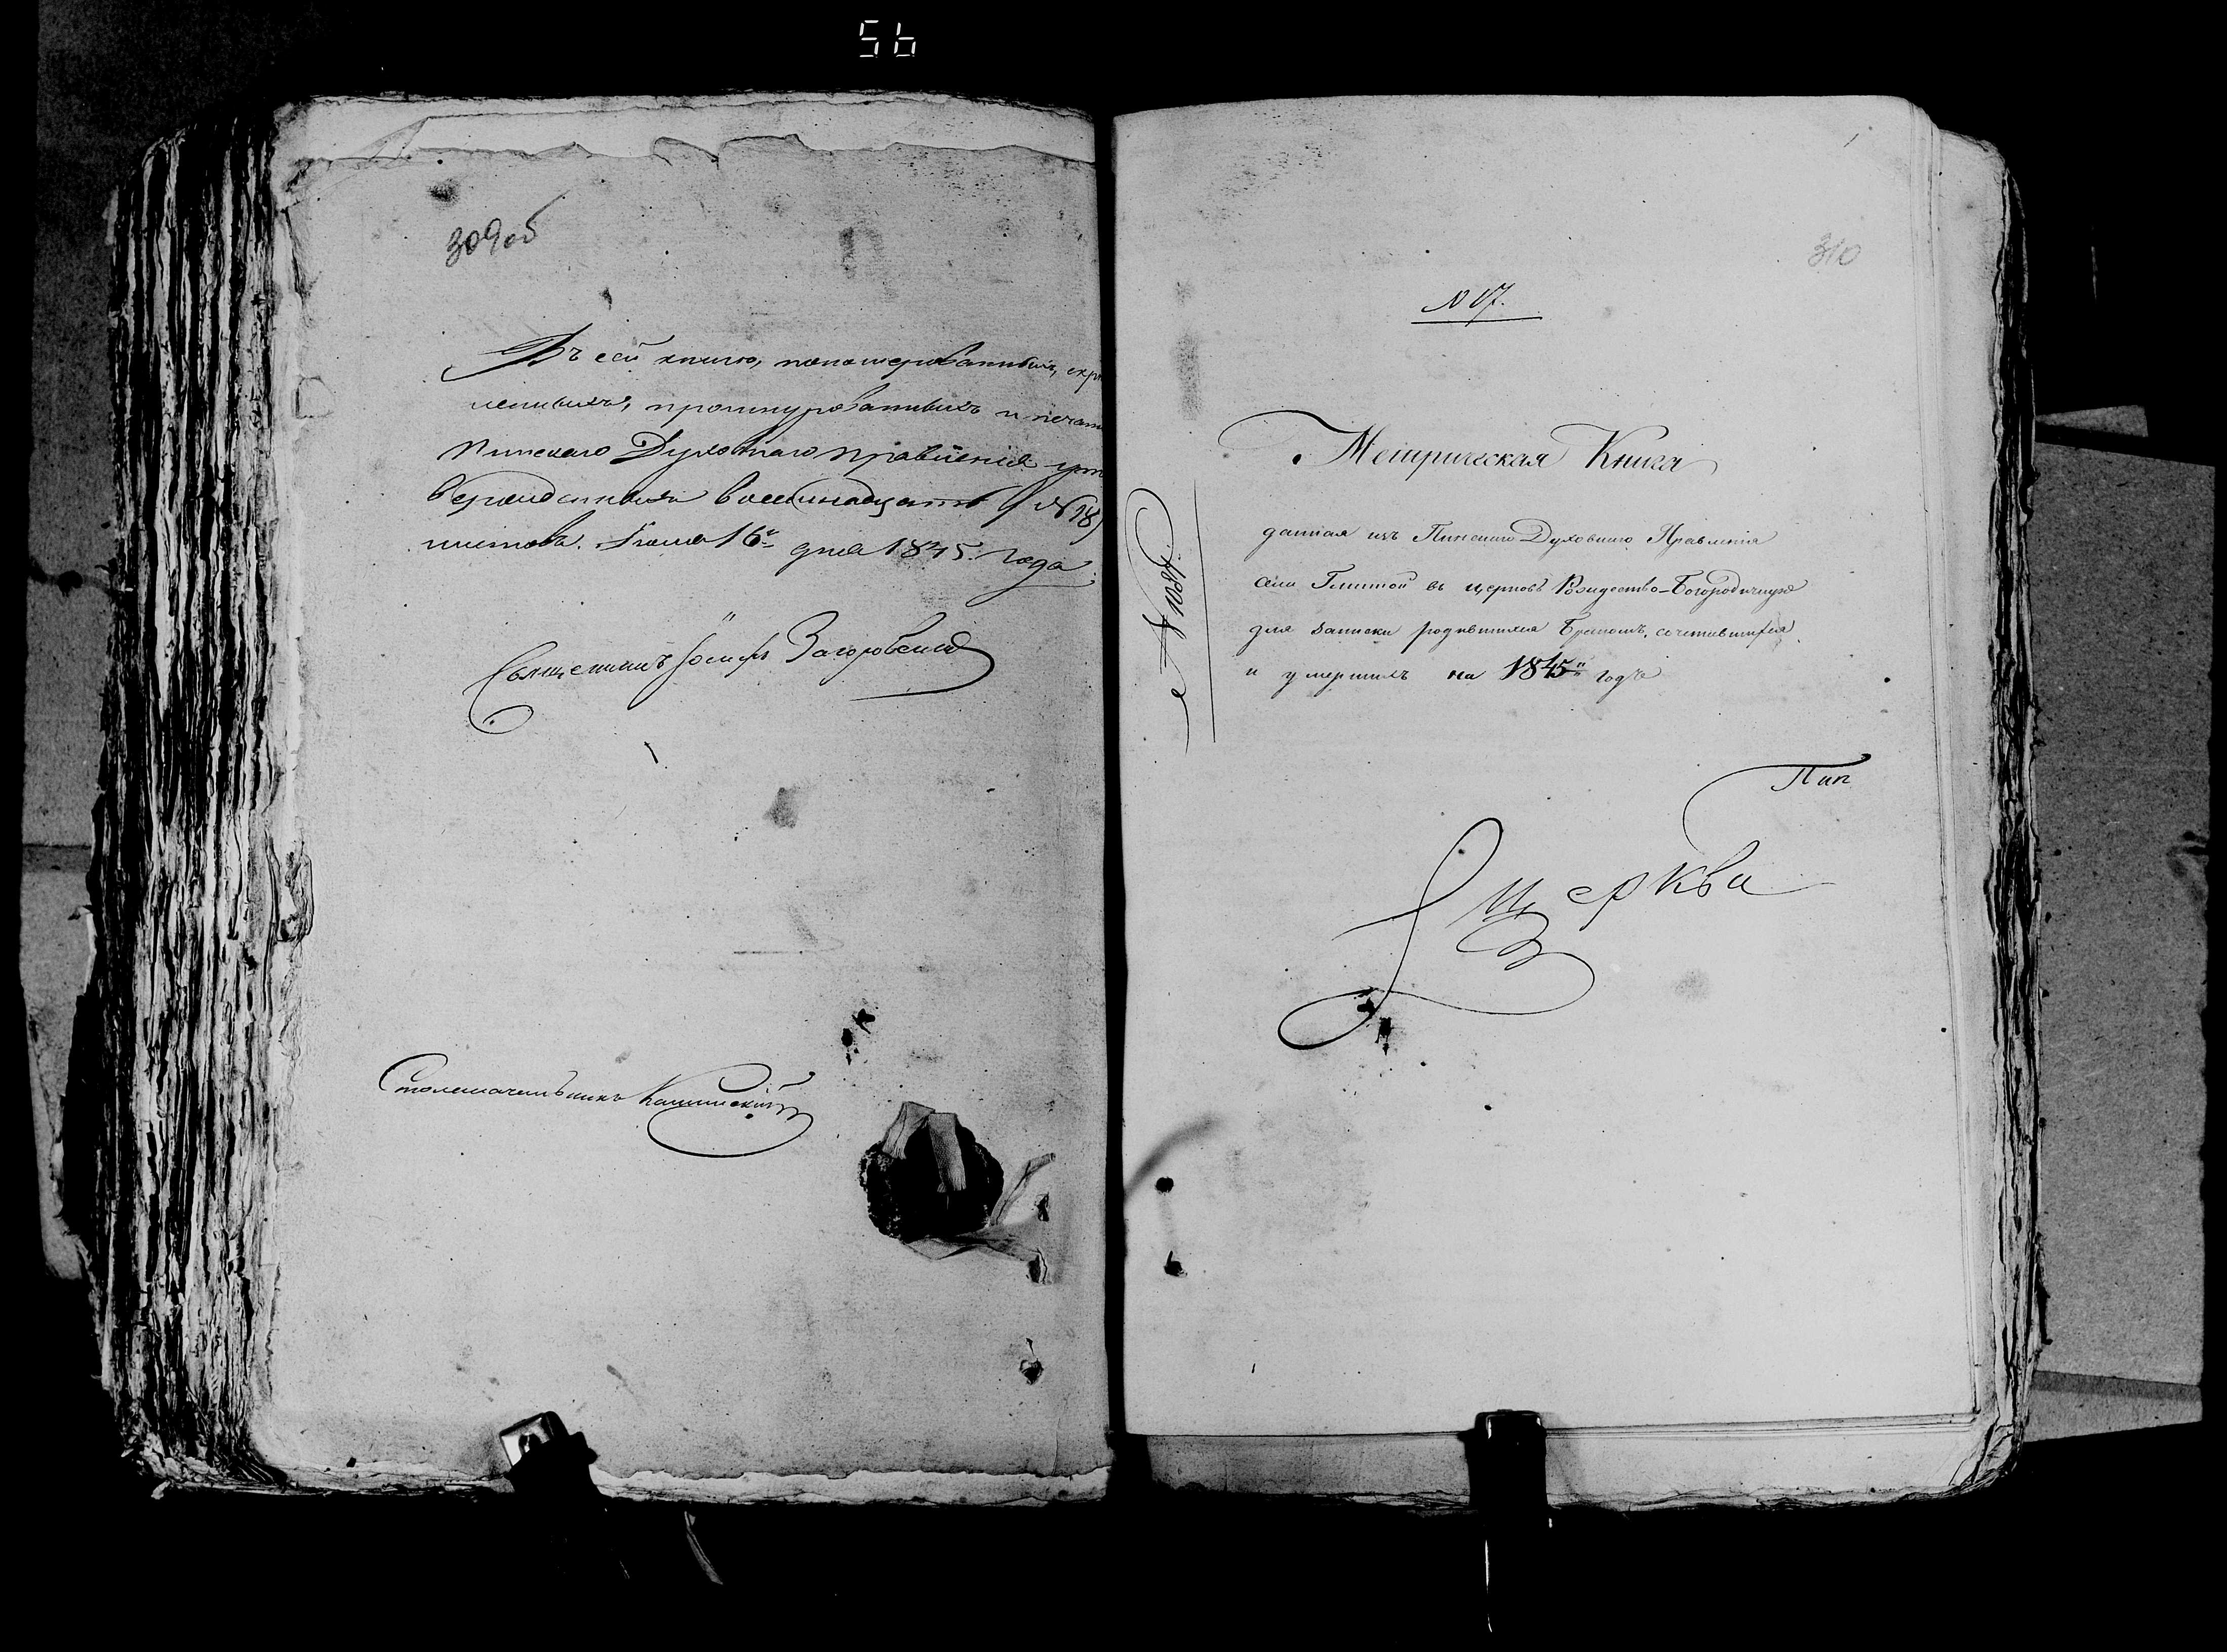 56
309об
Въ сей книгѣ, нономерованныхъ, скрѣ
пленныхъ, прошнурованныхъ и печатью
Пинскаго Духовнаго Правленія ут
вержденныхъ восемнадцать (№ 18)
листовъ. 16 дня 1845 года
Священникъ Іосифъ Загоровскій
Столоначальникъ Калинскій
310
№ 17.
Метрическая Книга
данная изъ Пинскаго Духовнаго Правленія
въ церковь Рождество-Богородичную
для записки родившихся Бракомъ сочетавшихся
и умершихъ на 1845 годъ
№ 1087.
Пин
Церква